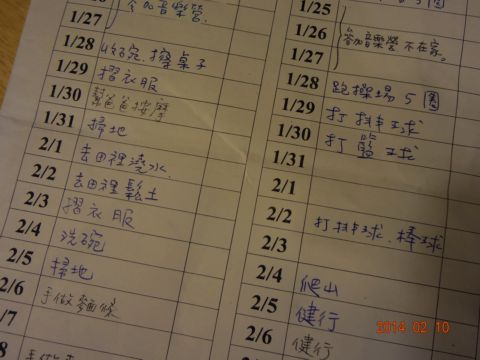 參加音樂營.
1/27
1/28 收碗.擦桌子
1/29 摺衣服
1/30 幫爸爸按摩
1/31 掃地
2/1 去田裡澆水.
2/2 去田裡鬆土
2/3 摺衣服
2/4 洗碗
2/5 掃地
2/6 手做麵條
/7
8
1/25
1/26 參加音樂營不在家。
1/27
1/28 跑操場5圈
1/29 打排球
1/30 打籃球
1/31
2/1
2/2 打排球.棒球
2/3
2/4 爬山
2/5 健行
2/6 健行
2014 02 10